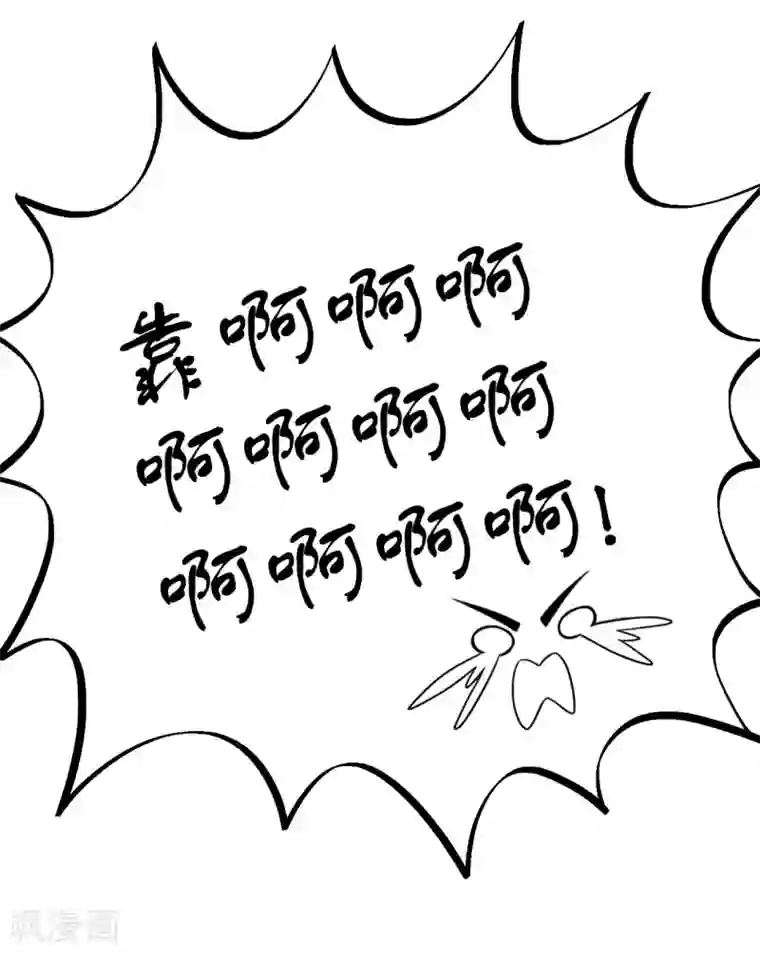 靠啊啊啊
啊啊啊啊
啊啊啊啊!
飒漫画